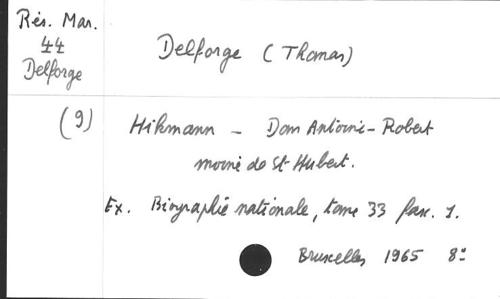 Rés. Mar.
44
Delforge
Delforge (Thomas)
(9) Hikmann - Dom Antoine-Robert
moine de St Hubert.
Ex. Biographie nationale, tome 33 fasc. 1.
Bruxelles 1965 8°